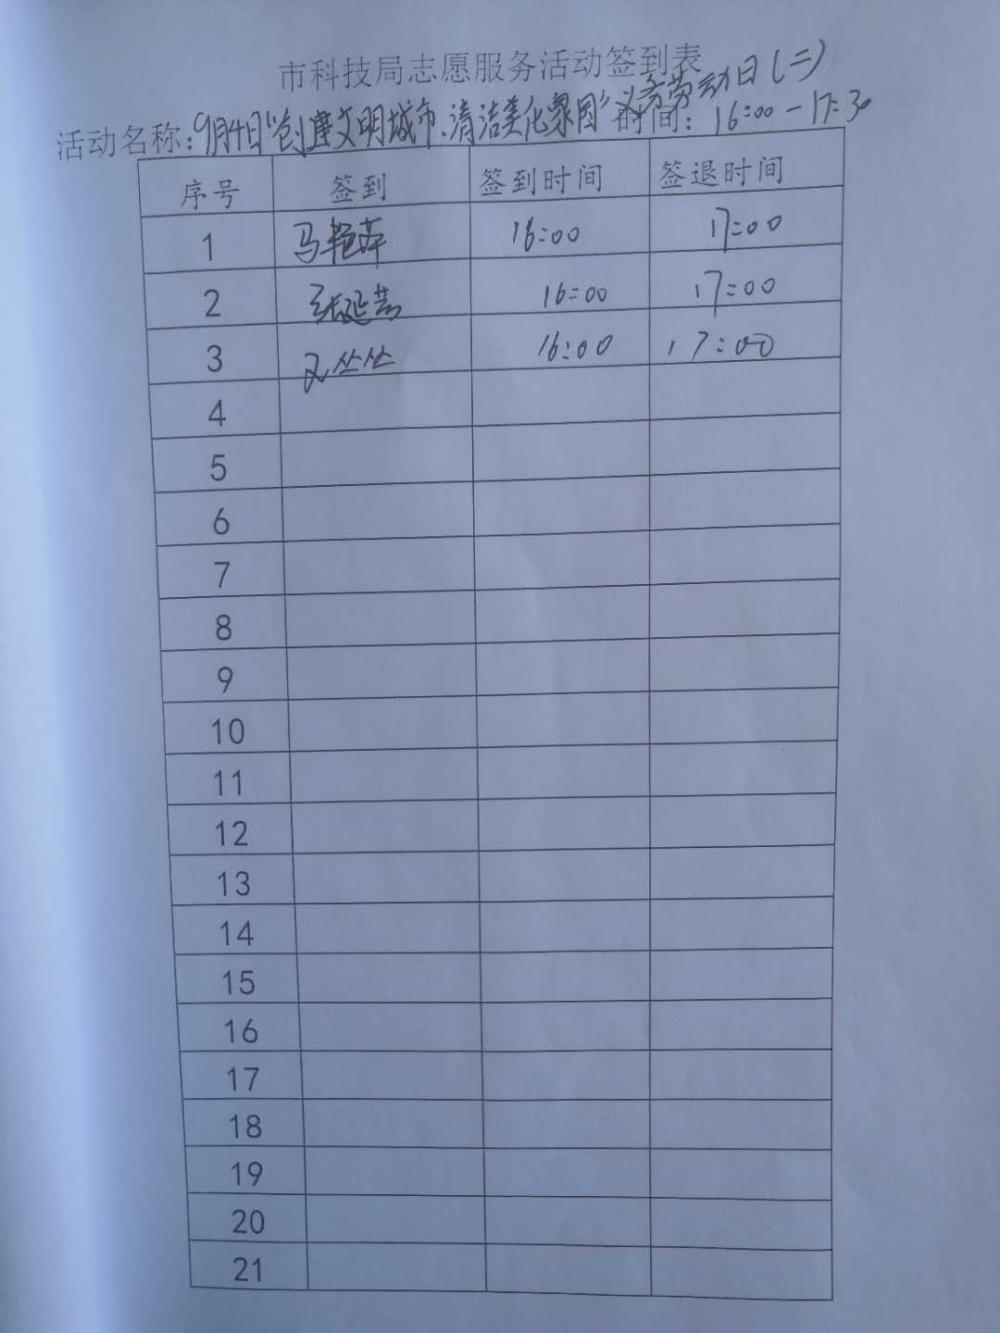 市科技局志愿服务活动签到表
活动名称:9月4日“创建文明城市、清洁美化家园”义务劳动日(二) 时间: 16:00-17:30
序号 签到 签到时间 签退时间
1 马艳萍 16:00 17:00
2 张延芳 16:00 17:00
3 文丛丛 16:00 17:00
4
5
6
7
8
9
10
11
12
13
14
15
16
17
18
19
20
21